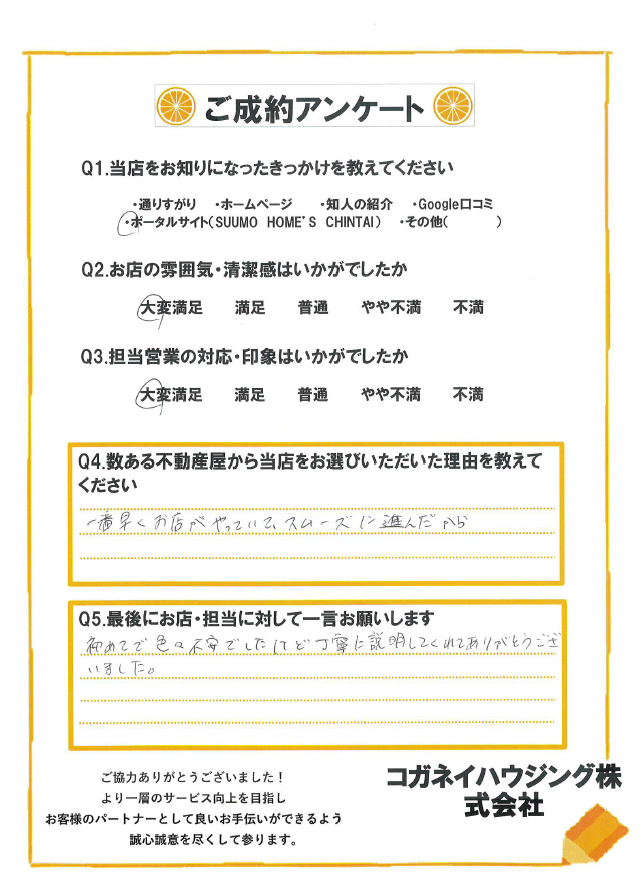 ご成約アンケート
Q1.当店をお知りになったきっかけを教えてください
・通りすがり ・ホームページ ・知人の紹介 ・Google口コミ
・ポータルサイト(SUUMO HOME'S CHINTAI) ・その他( )
Q2.お店の雰囲気・清潔感はいかがでしたか
大変満足 満足 普通 やや不満 不満
Q3.担当営業の対応・印象はいかがでしたか
大変満足 満足 普通 やや不満 不満
Q4.数ある不動産屋から当店をお選びいただいた理由を教えて
ください
一番早くお店がやっていて、スムーズに進んだから
Q5.最後にお店・担当に対して一言お願いします
初めてで色々不安でしたけど丁寧に説明してくれてありがとうござ
いました。
ご協力ありがとうございました!
より一層のサービス向上を目指し
お客様のパートナーとして良いお手伝いができるよう
誠心誠意を尽くして参ります。
コガネイハウジング株
式会社